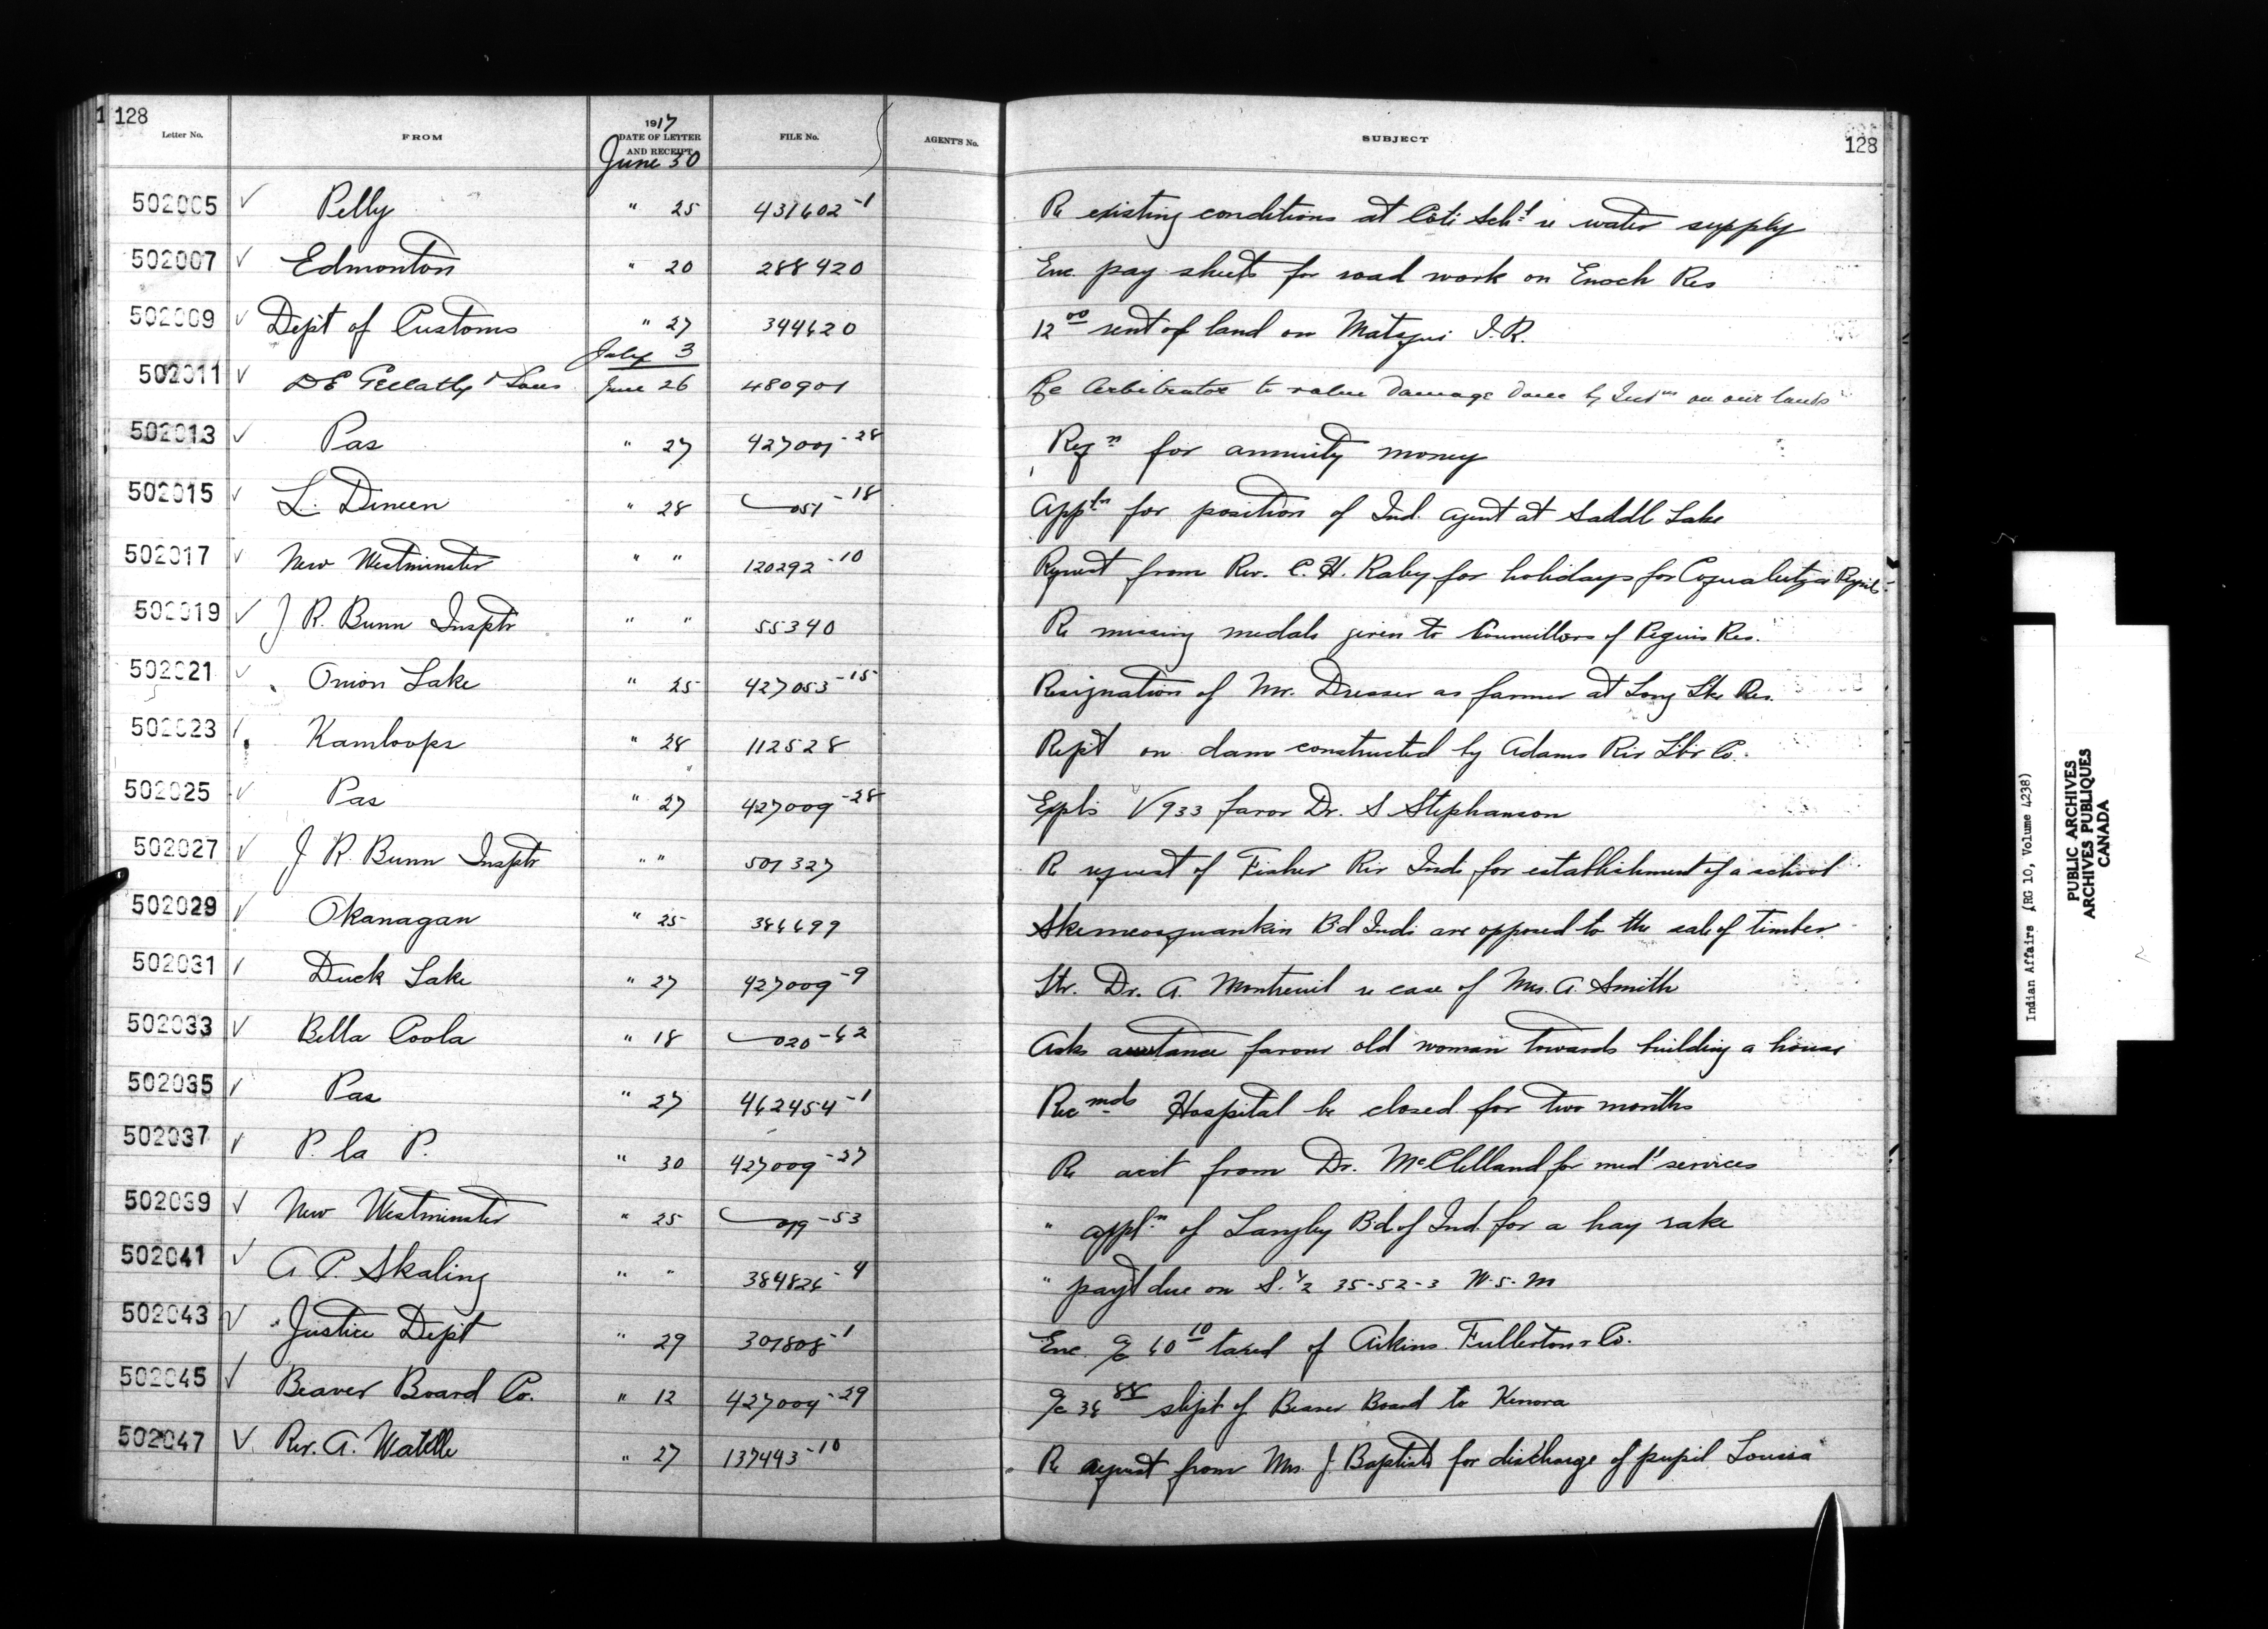 128
Letter No. FROM 1917 DATE OF LETTER AND RECEIPT FILE No. AGENT'S No. SUBJECT 128
June 30
502005 Pelly " 25 431602-1 Re existing conditions at Coté Schl re water supply
502007 Edmonton " 20 288420 Enc pay sheets for road work on Enoch Res
502009 Dept of Customs " 27 344620 12 00 rent of land on Matsqui I.R.
July 3
502011 D E Gellatly & Sons June 26 480901 Re Arbitrator to value damage done by Indns on our lands
502013 Pas " 27 427009-28 Reqn for annuity money
502015 L. Dineen " 28 051-18 Appln for position of Ind. Agent at Saddle Lake
502017 New Westminster " " 120292-10 Request from Rev. C. H. Raby for holidays for Coqualeetza Pupils
502019 J R. Bunn Insptr " " 55340 Re missing medals given to Councillors of Peguis Res.
502021 Onion Lake " 25 427053-15 Resignation of Mr. Dresser as farmer at Long Lke Res.
502023 Kamloops " 28 112528 Rept on dam constructed by Adams Riv Lbr Co.
502025 Pas " 27 427009-28 Expls V 933 favor Dr. S Stephanson
502027 J R. Bunn Insptr " " 501327 Re request of Fisher Riv Inds for establishment of a school
502029 Okanagan " 25 386699 Bd Inds are opposed to the sale of timber
502031 Duck Lake " 27 427009-9 Ltr. Dr. A. Montreuil re case of Mrs. A. Smith
502033 Bella Coola " 18 020-62 Asks assistance favour old woman towards building a house
502035 Pas " 27 462454-1 Recmds Hospital be closed for two months
502037 P. la P. " 30 427009-27 Re acct from Dr. McClelland for medl services
502039 New Westminster " 25 019-53 " appln of Langley Bd of Ind. for a hay rake
502041 A. P. Skaling " " 384826-4 " payt due on S. ½ 35-52-3 W. 5. M
502043 Justice Dept " 29 301808-1 Enc. a/c 60 10 taxed of Aikins Fullerton & Co.
502045 Beaver Board Co. " 12 427009-29 a/c 36 88 shipt of Beaver Board to Kenora
502047 Rev. A. Watelle " 27 137493-10 Re request from Mrs J. Baptiste for discharge of pupil Louisa
Indian Affairs (RG 10, Volume 4238)
PUBLIC ARCHIVES
ARCHIVES PUBLIQUES
CANADA